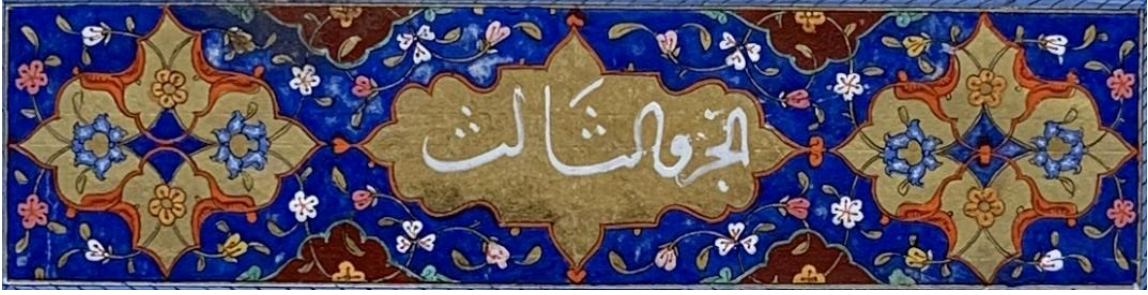 الجزو الثالث